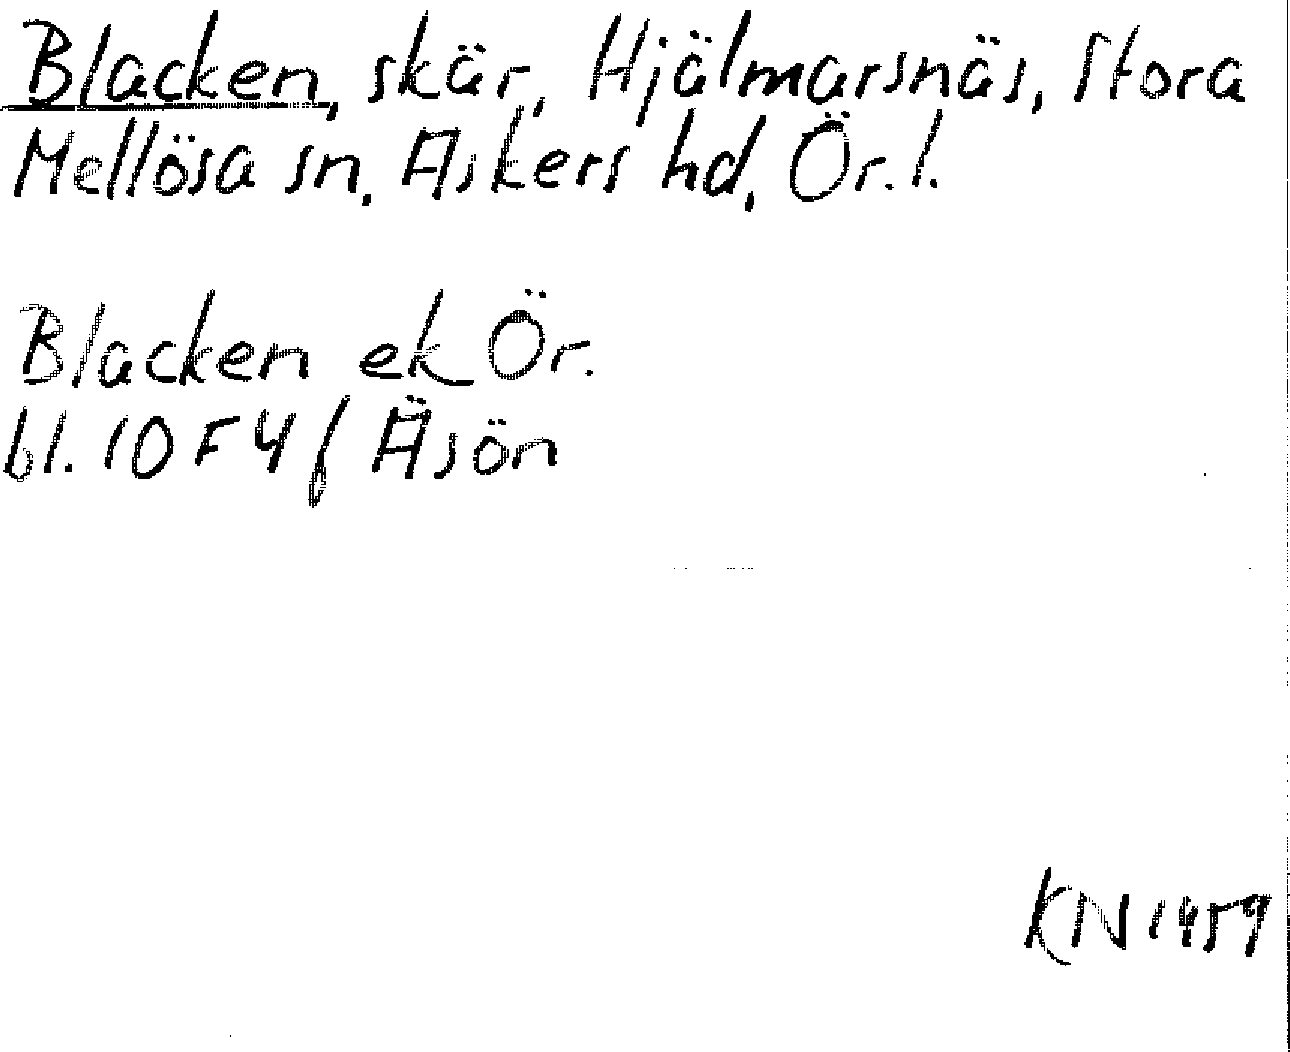 Blacken, skär, Hjälmarsnäs, Stora
Mellösa sn, Askers hd, Ör. l.
Blacken ek Ör.
bl. 10 F 4 f Äsön
KN 1959